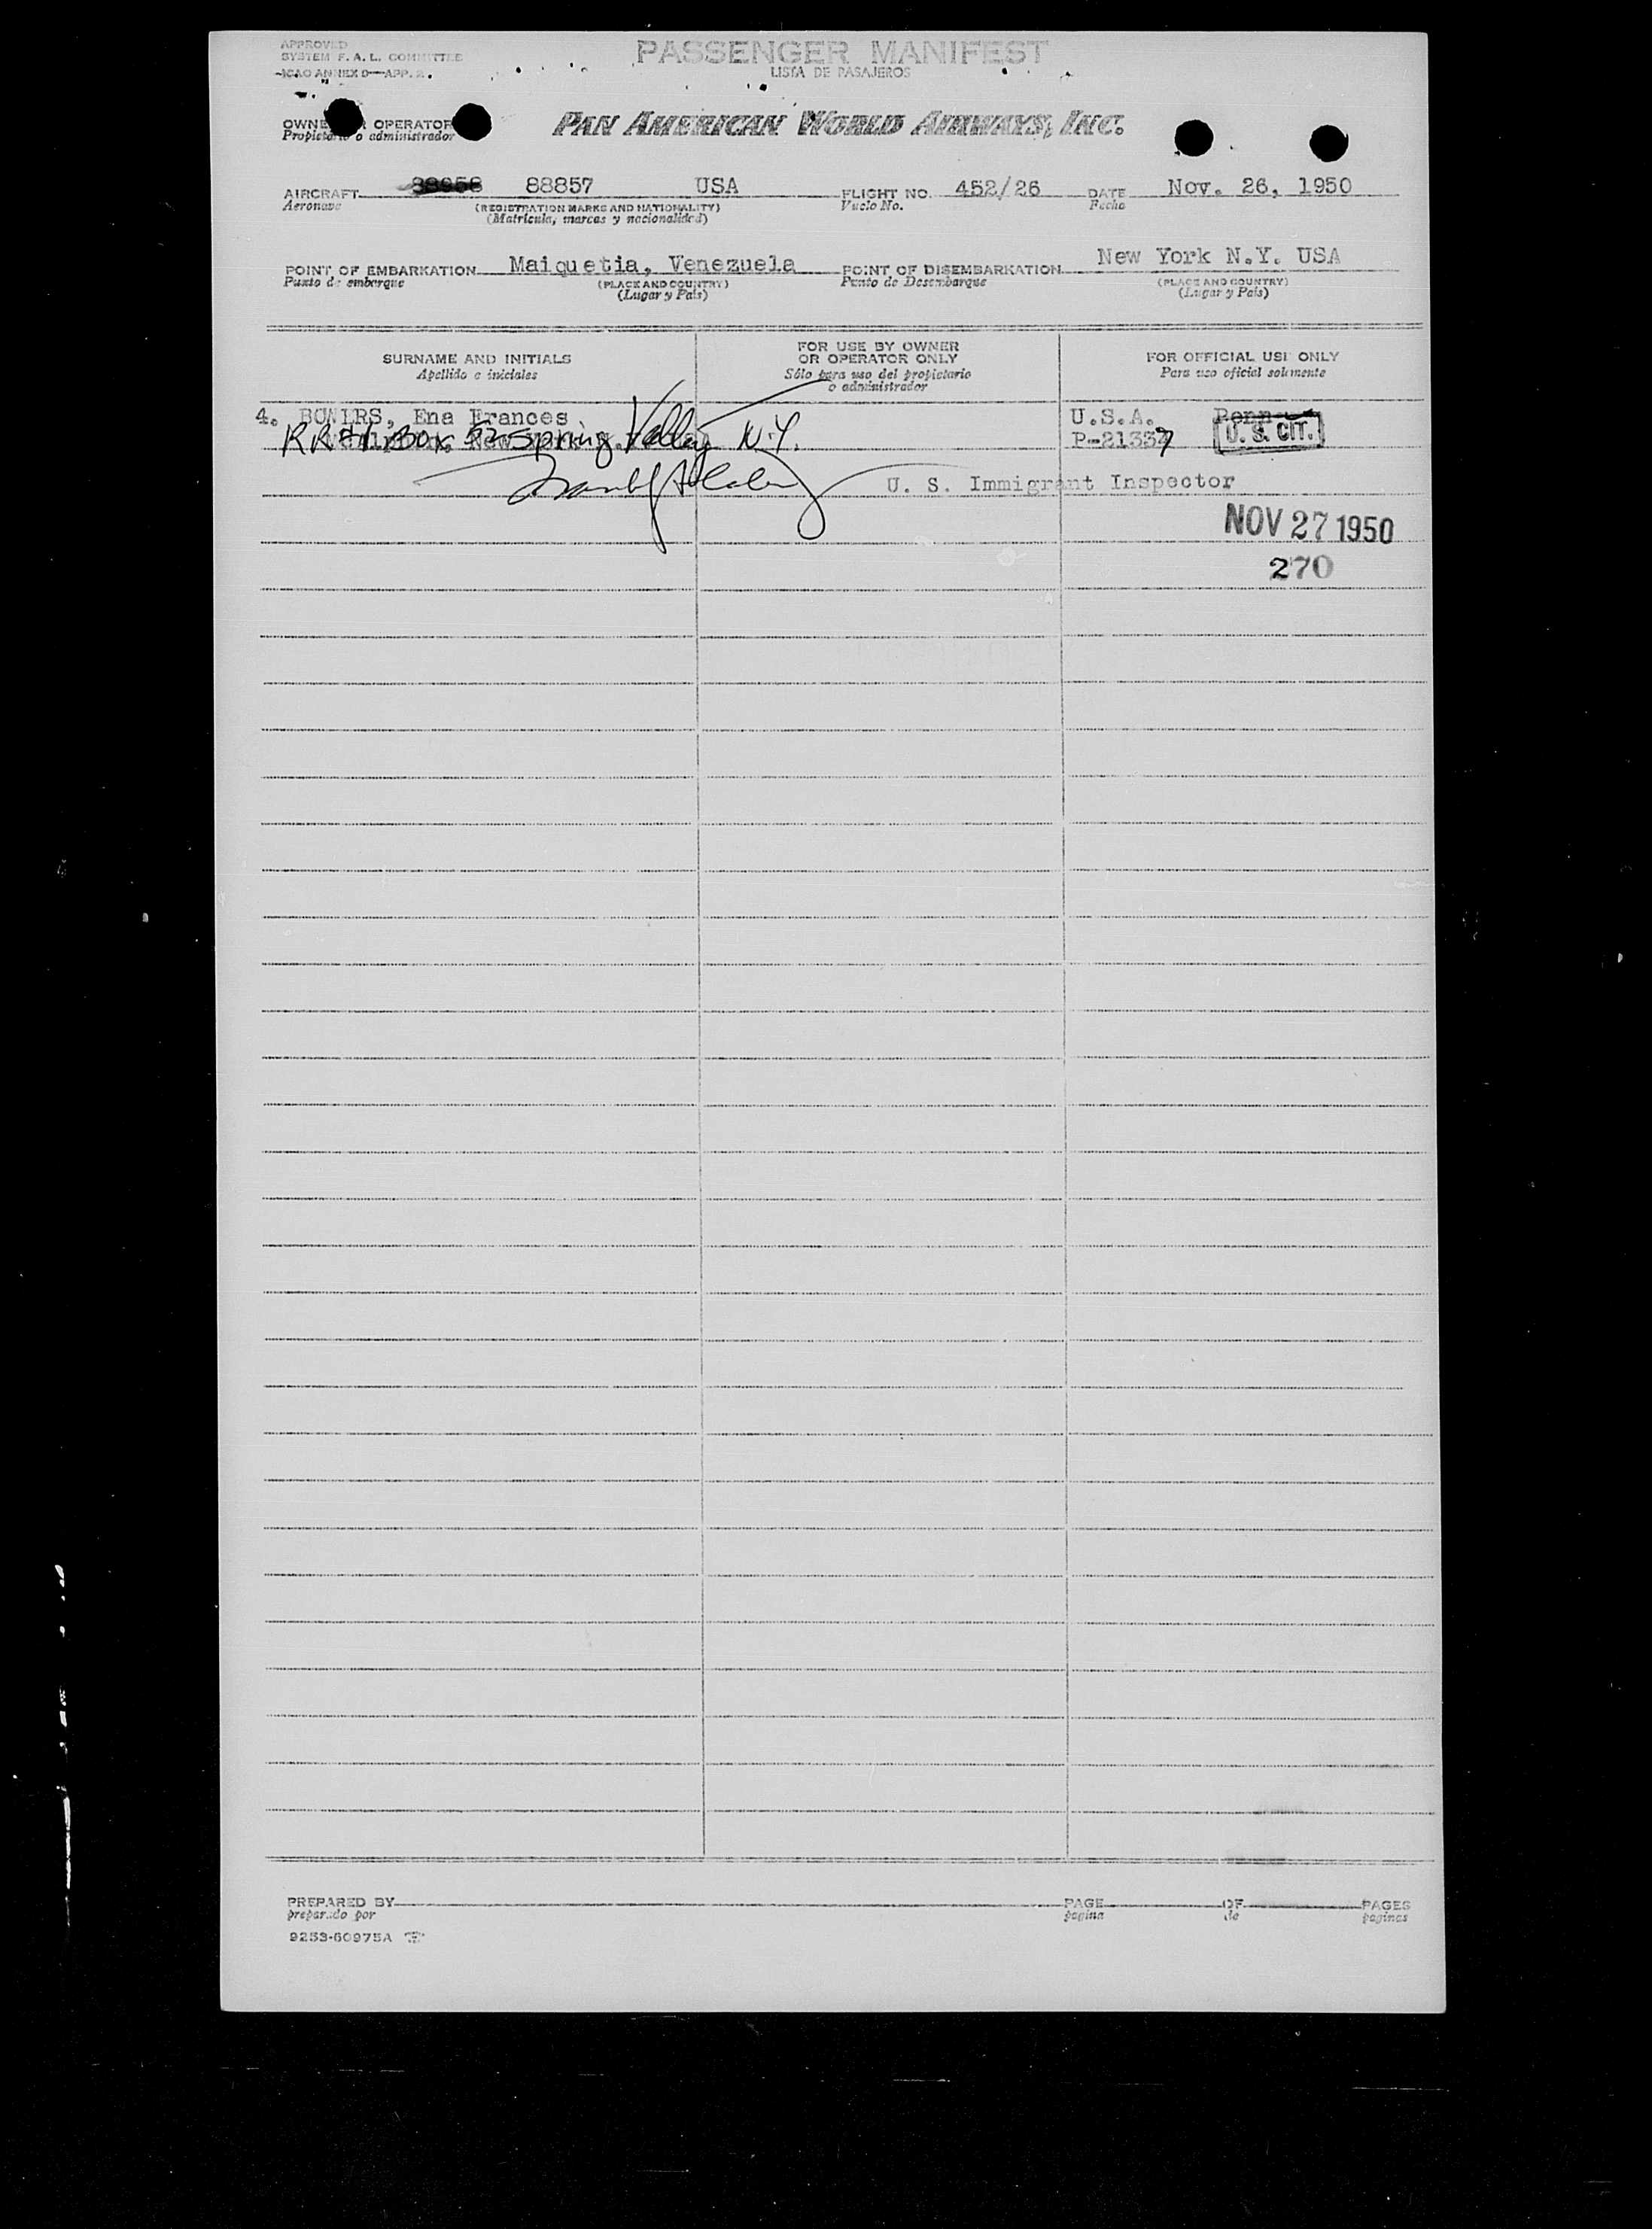 APPROVED
SYSTEM F. A. L. COMMITTEE
ICAO ANNEX 9—APP. 2.
PASSENGER MANIFEST
LISTA DE PASAJEROS
OPERATOR
o administrador
PAN AMERICAN WORLD AIRWAYS, INC.
AIRCRAFT 88857 USA FLIGHT NO. 452/26 DATE Nov. 26, 1950
Aeronave (REGISTRATION MARKS AND NATIONALITY) Vuelo No. Fecha
(Matricula, marcas y nacionalidad)
POINT OF EMBARKATION Maiquetia, Venezuela POINT OF DISEMBARKATION New York N.Y. USA
Punto de embarque (PLACE AND COUNTRY) Punto de Desembarque (PLACE AND COUNTRY)
(Lugar y Pais) (Lugar y Pais)
SURNAME AND INITIALS
Apellido e iniciales
FOR USE BY OWNER
OR OPERATOR ONLY
Sólo para uso del propietario
o administrador
FOR OFFICIAL USE ONLY
Para uso oficial solamente
4. Ena Frances U.S.A. Penn
RR#1 Box 52 Spring Valley N.Y. P-21337 U. S. CIT.
U. S. Immigrant Inspector
NOV 27 1950
270
PREPARED BY PAGE OF PAGES
preparado por pagina de paginas
9253-60975A